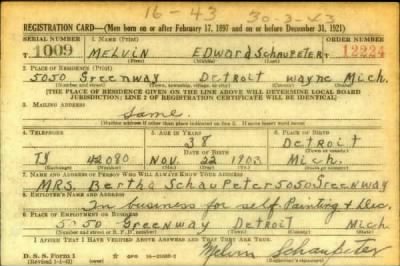 16-43 30-3-43
REGISTRATION CARD—(Men born on or after February 17, 1897 and on or before December 31, 1921)
SERIAL NUMBER 1. NAME (Print) ORDER NUMBER
T 1009 MELVIN EDward SchaupeTer 12224
(First) (Middle) (Last)
2. PLACE OF RESIDENCE (Print)
5050 Greenway Detroit Wayne Mich.
(Number and street) (Town, township, village, or city) (County) (State)
[THE PLACE OF RESIDENCE GIVEN ON THE LINE ABOVE WILL DETERMINE LOCAL BOARD
JURISDICTION; LINE 2 OF REGISTRATION CERTIFICATE WILL BE IDENTICAL]
3. MAILING ADDRESS
Same
[Mailing address if other than place indicated on line 2. If same insert word same]
4. TELEPHONE 5. AGE IN YEARS 6. PLACE OF BIRTH
38 DeTroit
DATE OF BIRTH (Town or county)
Ty 42090 Nov. 22 1903 Mich.
(Exchange) (Number) (Mo.) (Day) (Yr.) (State or country)
7. NAME AND ADDRESS OF PERSON WHO WILL ALWAYS KNOW YOUR ADDRESS
MRS. Bertha SchauPeter 5050 Greenway
8. EMPLOYER'S NAME AND ADDRESS
In business for self Painting & Dec.
9. PLACE OF EMPLOYMENT OR BUSINESS
5050 Greenway Detroit Mich
(Number and street or R. F. D. number) (Town) (County) (State)
I AFFIRM THAT I HAVE VERIFIED ABOVE ANSWERS AND THAT THEY ARE TRUE.
D. S. S. Form 1
Melvin Schaupeter